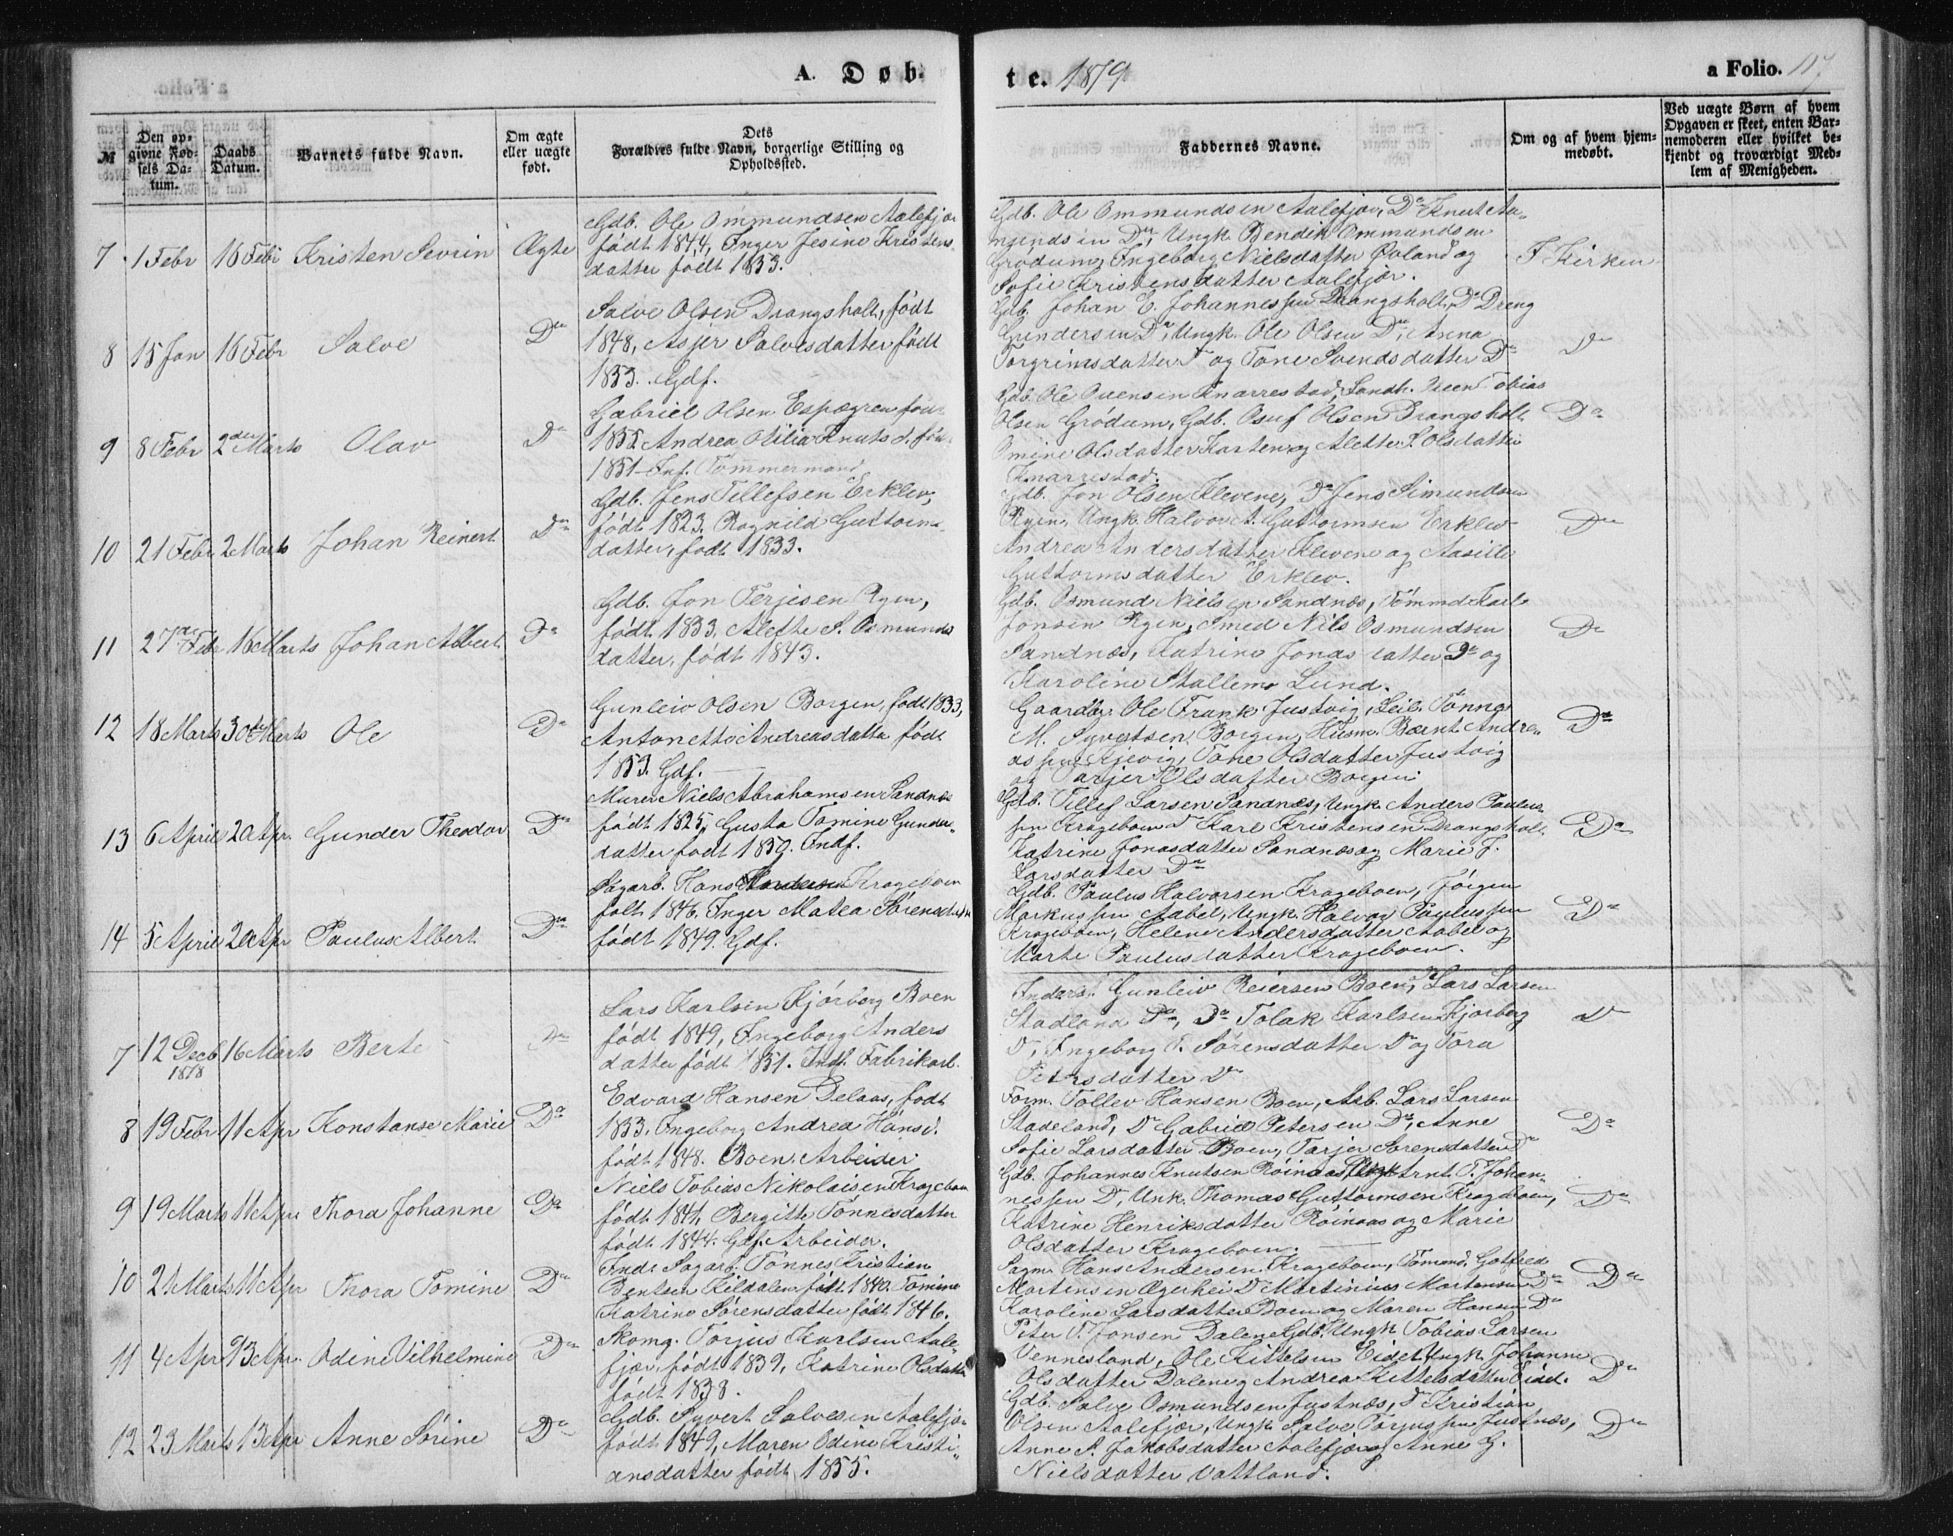 A. Døb-
te. 1879
a Folio. 117
№
Den op-
givne Fød-
sels Da-
tum.
Daabs
Datum.
Barnets fulde Navn.
Om ægte
eller uægte
født.
Dets
Forældres fulde Navn, borgerlige Stilling og
Opholdssted.
Faddernes Navne.
Om og af hvem hjem-
medøbt.
Ved uægte Børn af hvem
Opgaven er skeet, enten Bar-
nemoderen eller hvilket be-
kjendt og troværdigt Med-
lem af Menigheden.
7 1 Febr 16 Febr Kristen Sevrin Ægte
Gdb. Ole Ommundsen Aalefjær
født 1844, Inger Jesine Kristens
datter født 1853.
Gdb. Ole Ommundsen Aalefjær, Da Knut Aa-
mundsen Da, Ungk. Bendik Ommundsen
Grødum, Ingeborg Nielsdatter Øvland og
Sofie Kristensdatter Aalefjær.
I Kirken
8 15 Jan 16 Febr Salve Da
Salve Olsen Drangsholt, født
1848, Asjer Salvesdatter født
1853. Gdf.
Gdb. Johan E. Johannessen Drangsholt, Da Dreng
Gundersen Da, Ungk. Ole Olsen Da, Anna
Torgrimsdatter Da og Tone Svendsdatter Da
Da
9 8 Febr 2den Marts Olav Da
Gabriel Olsen Espegren født
1855 Andrea Otilia Knuts d. født
1851 Inf. Tømmermand
Gdb. Ole Ouensen Knarrestad, Sandh. Tobias
Olsen Grødum, Gdb. Osuf Olsen Drangsholt
Omine Olsdatter Karten og Alette S. Olsdatter
Knarrestad.
Da
10 21 Febr 2 Marts Johan Reinert Da
Gdb. Jens Tellefsen Erklev,
født 1823, Ragnild Guttorms-
datter, født 1833.
Gdb. Jon Olsen Kleven, Da Jens Simundsen
Ryen, Ungk. Halvor A. Guttormsen Erklev
Andrea Andersdatter Kleven og Aasille
Guttormsdatter Erklev.
Da
11 27de Febr 16 Marts Johan Albert Da
Gdb. Jon Terjesen Ryen,
født 1833, Alette S. Osmunds
datter, født 1843.
Gdb. Osmund Nielsen Sandnæs, Tømmd Karl
Jonsen Ryen, Smed Nils Osmundsen
Sandnæs, Katrine Jonasdatter Da og
Karoline Stallemo Lund.
Da
12 18 Marts 30te Marts Ole Da
Gunleiv Olsen Borgen, født 1833,
Antonette Andreasdatter født
1853. Gdf.
Gaardbr. Ole Frank Justvig, Seil. Tønnes
M. Syvertsen Borgen, Husm. Bernt Andre-
assen Kjevig, Tone Olsdatter Justvig
og Tarjer Olsdatter Borgen.
Da
13 6 April 20 Apr. Gunder Theodor Da
Murer Niels Abrahamsen Sandnæs
født 1825, Gusta Tomine Gunder-
datter født 1839. Indf.
Gdb. Tellef Larsen Sandnæs, Ungk. Anders Paulus-
sen Krageboen Da Karl Kristensen Drangsholt
Katrine Jonasdatter Sandnæs og Marie J.
Larsdatter Da
Da
14 5 April 20 Apr Paulus Albert Da
Sagarb. Hans Andersen Krageboen
født 1846, Inger Matea Sørensdatter
født 1849. Gdf.
Gdb. Paulus Halvorsen Krageboen, Jørgen
Markussen Aabel, Ungk. Halvor Paulussen
Krageboen, Helene Andersdatter Aabel og
Marte Paulusdatter Krageboen.
Da
7 12 Decb 1878 16 Marts Berte Da
Lars Karlsen Kjørberg Boen
født 1849, Ingeborg Anders
datter født 1851. Indf. Fabrikarb.
Inderst Gunleiv Reiersen Boen, Da Lars Larsen
Stadland Da, Da Tolak Karlsen Kjørberg
Da, Ingeborg T. Sørensdatter Da og Tora
Petersdatter Da
Da
8 19 Febr 11 Apr Konstanse Marie Da
Edvard Hansen Delaas, født
1833, Ingeborg Andrea Hansd.
født 1848. Boen, Arbeider
Form. Tollev Hansen Boen, Arb. Lars Larsen
Stadeland, Da Gabriel Petersen Da, Anne
Sofie Larsdatter Boen, Tarjer Sørensdatter Da
Da
9 19 Marts 11 Apr Thora Johanne Da
Niels Tobias Nikolaisen Krageboen
født 1841, Bergitte Tønnesdatter
født 1844. Gdf. Arbeider.
Gdb. Johannes Knutsen Røinaas, Ungk. Arnt T. Johan-
nessen Da, Unk. Thomas Guttormsen Krageboen,
Katrine Henriksdatter Røinaas og Marie
Olsdatter Krageboen.
Da
10 21 Marts 11 Apr Thora Tomine Da
Inds. Sagarb. Tønnes Kristian
Bentsen Kildalen, født 1840. Tomine
Katrine Sørensdatter født 1846.
Sagm. Hans Andersen Krageboen, Tømmd. Gotfred
Martensen Ægerhei Da Martinius Mortensen Da
Karoline Larsdatter Boen og Maren Hansen Da
Da
11 4 Apr 13 Apr. Odine Vilhelmine Da
Skomg. Torjus Karlsen Aale-
fjær, født 1839, Katrine Olsdatter
født 1838.
Peter T. Jonsen Dalene Gdb. Ungk Tobias Larsen
Vennesland, Ole Kittelsen Eidet Ungk. Johanne
Olsdatter Dalene og Andrea Kittelsdatter Eidet.
Da
12 23 Marts 13 Apr Anne Sørine Da
Gdb. Syvert Salvesen Aalefjær
født 1849, Maren Odine Kristi-
ansdatter født 1855.
Gdb. Salve Osmundsen Justnæs, Da Kristian
Olsen Aalefjær, Ungk. Salve Torjussen Justnæs,
Anne S. Jakobsdatter Aalefjær og Anne G.
Nielsdatter Vattland.
Da